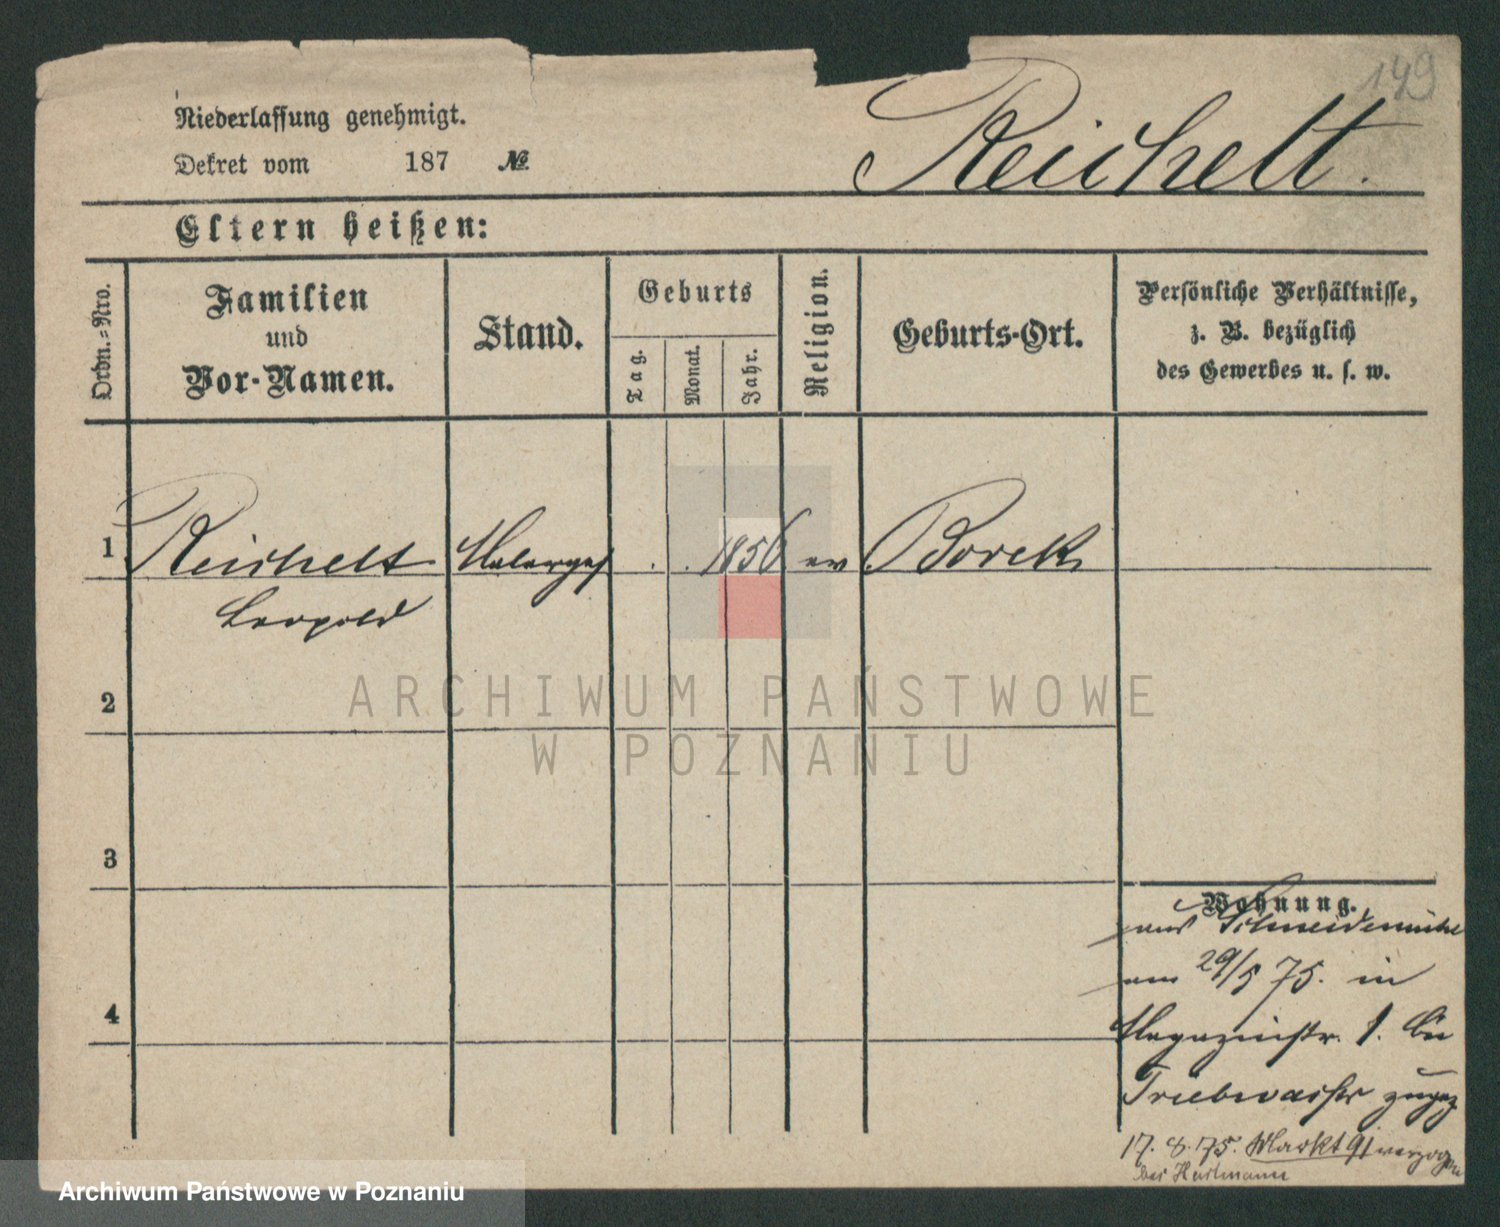 149
Niederlassung genehmigt.
Dekret vom 187 №
Reichelt.
Eltern heißen:
Ordn.=Nro.
Familien
und
Vor-Namen.
Stand.
Geburts
Tag.
Monat.
Jahr.
Religion.
Geburts-Ort.
Persönliche Verhältnisse,
z. B. bezüglich
des Gewerbes u. s. w.
1 Reichelt Malerges . . 1856 ev Borek
Leopold
2
ARCHIWUM PAŃSTWOWE
W POZNANIU
3
Wohnung.
aus Schneidemühl
am 29/5 75. in
4
Magazinstr. 1. bei
Triebwasser zugez
17. 8. 75. Markt 91 verzogen
bei Heilmann
Archiwum Państwowe w Poznaniu